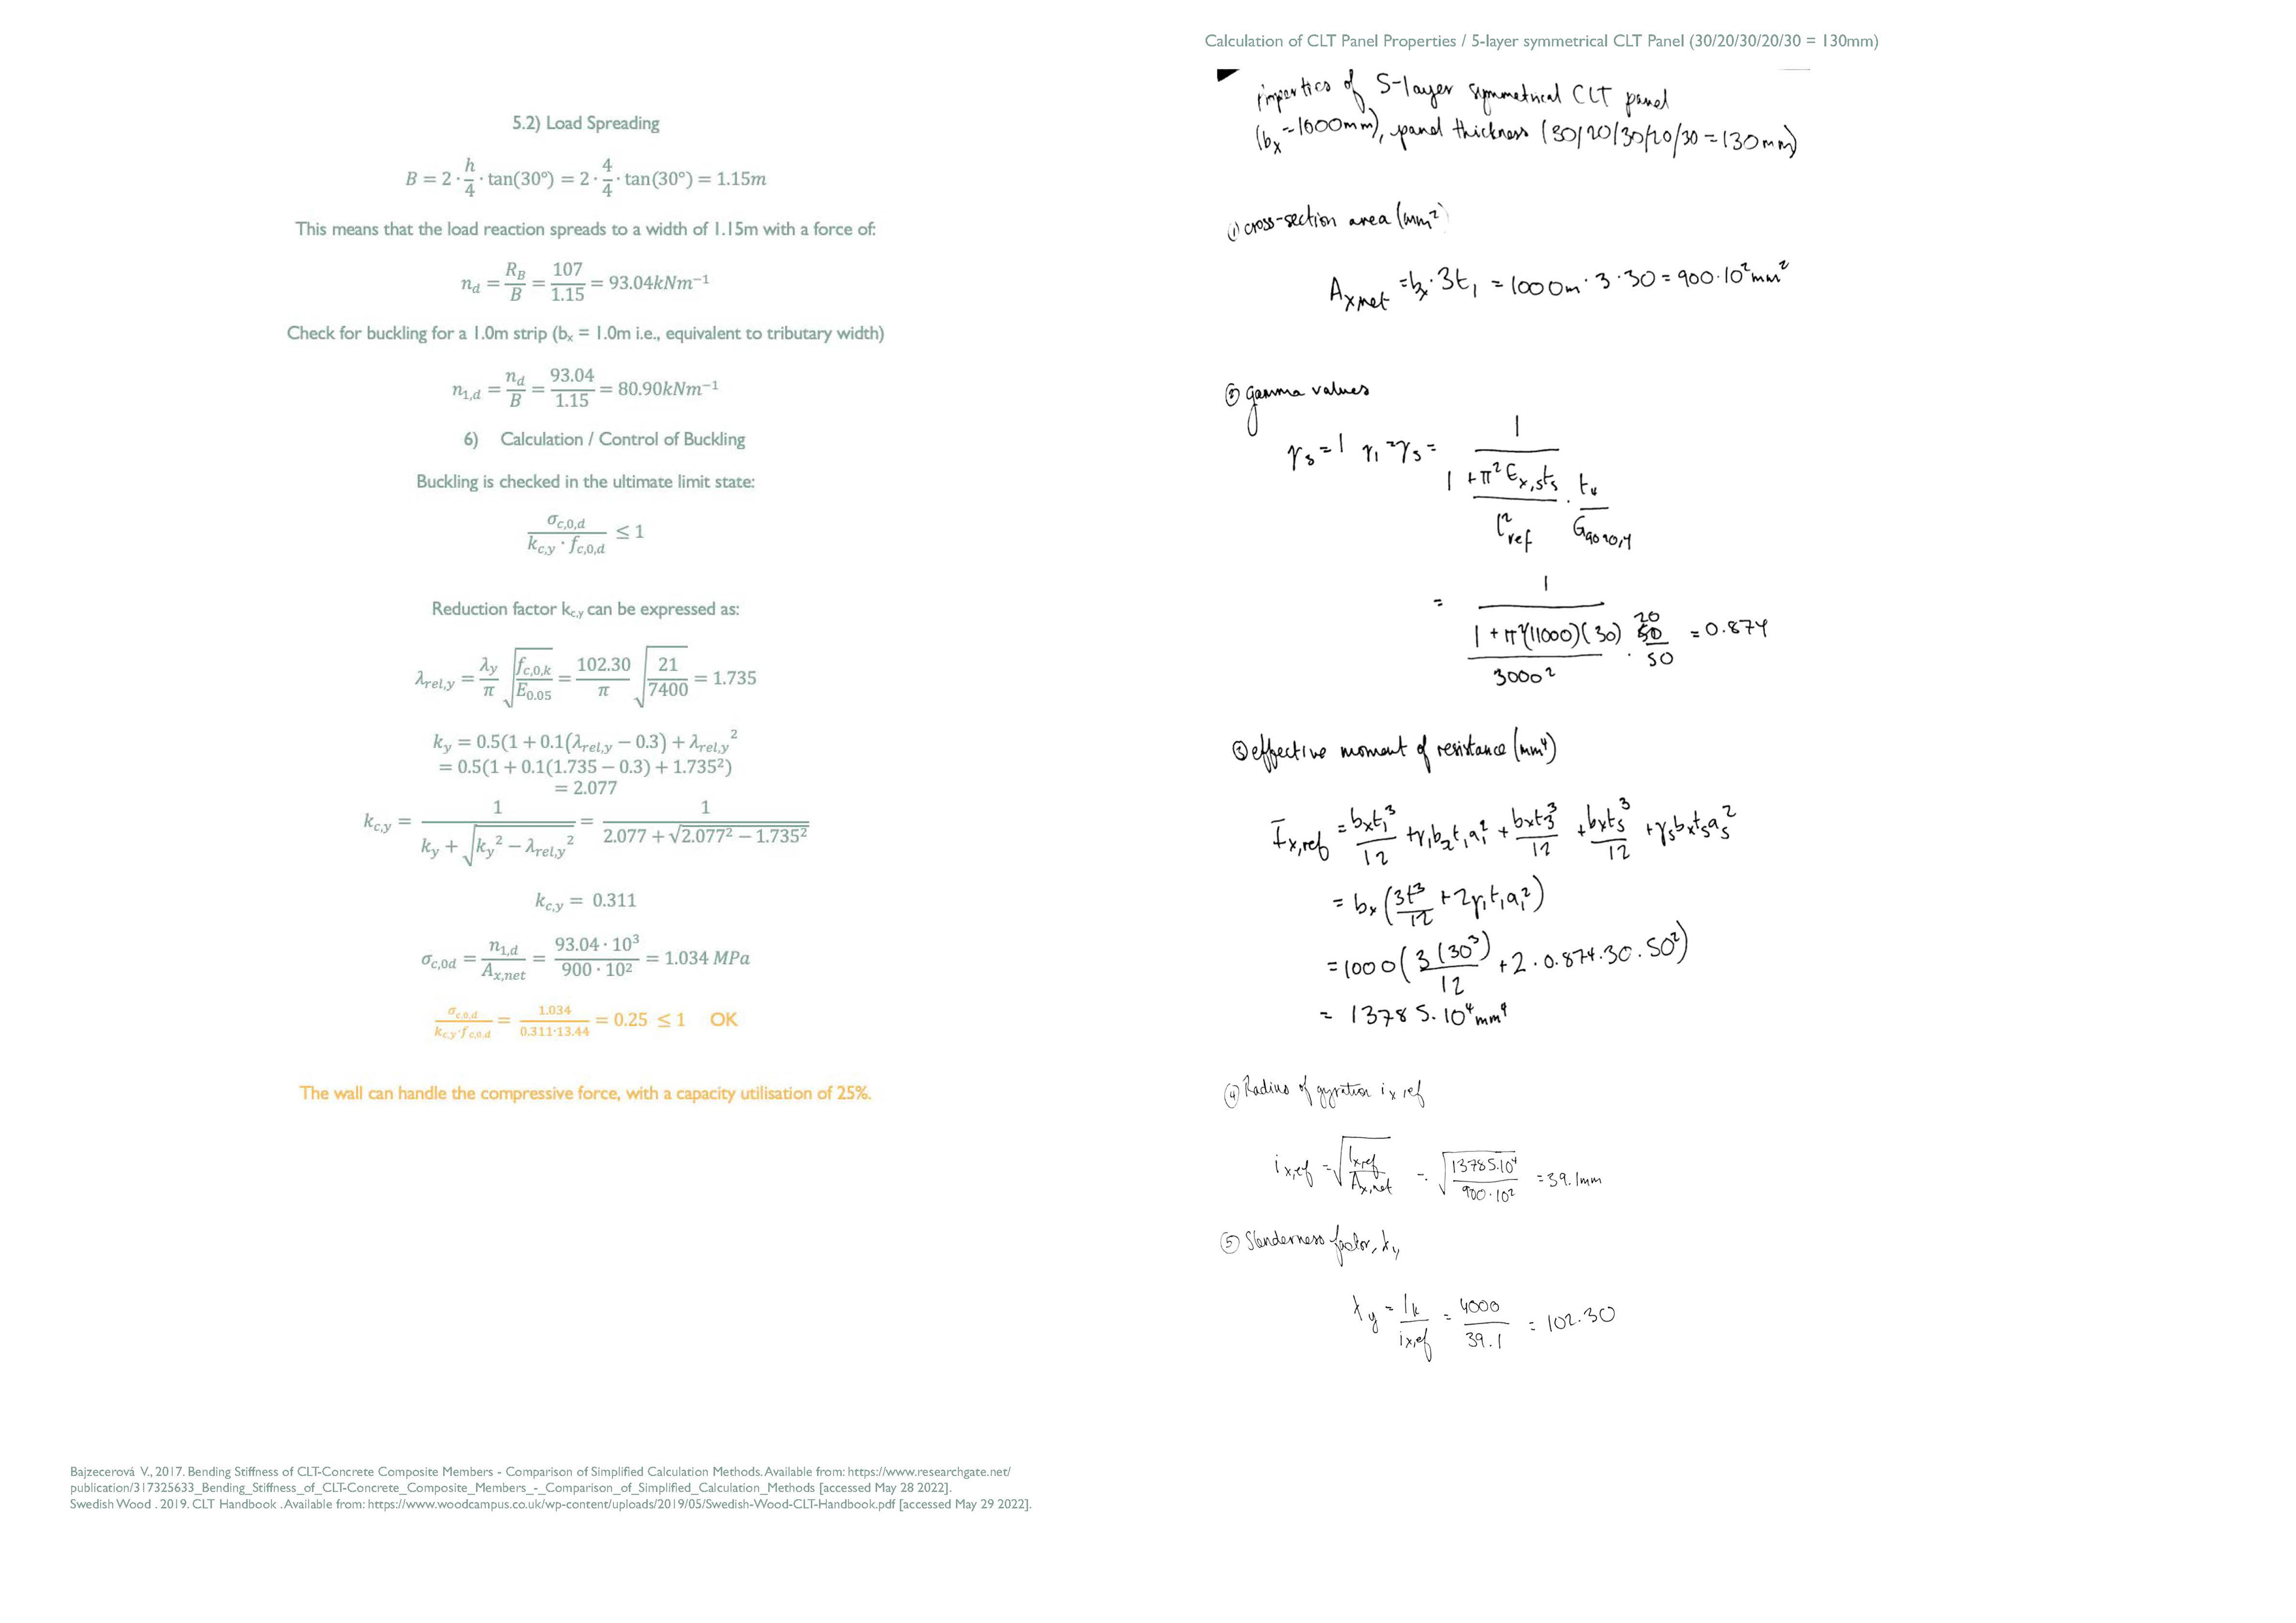 5.2) Load Spreading
B = 2 · h/4 · tan(30°) = 2 · 4/4 · tan(30°) = 1.15m
This means that the load reaction spreads to a width of 1.15m with a force of:
n_d = R_B/B = 107/1.15 = 93.04kNm⁻¹
Check for buckling for a 1.0m strip (bₓ = 1.0m i.e., equivalent to tributary width)
n_1,d = n_d/B = 93.04/1.15 = 80.90kNm⁻¹
6) Calculation / Control of Buckling
Buckling is checked in the ultimate limit state:
σ_c,0,d / (k_c,y · f_c,0,d) ≤ 1
Reduction factor k_c,y can be expressed as:
λ_rel,y = λ_y/π √(f_c,0,k/E_0.05) = 102.30/π √(21/7400) = 1.735
k_y = 0.5(1 + 0.1(λ_rel,y − 0.3) + λ_rel,y²
= 0.5(1 + 0.1(1.735 − 0.3) + 1.735²)
= 2.077
k_c,y = 1/(k_y + √(k_y² − λ_rel,y²)) = 1/(2.077 + √(2.077² − 1.735²))
k_c,y = 0.311
σ_c,0d = n_1,d/A_x,net = 93.04 · 10³/900 · 10² = 1.034 MPa
σ_c,0,d/(k_c,y·f_c,0,d) = 1.034/(0.311·13.44) = 0.25 ≤ 1 OK
The wall can handle the compressive force, with a capacity utilisation of 25%.
Bajzecerová V., 2017. Bending Stiffness of CLT-Concrete Composite Members - Comparison of Simplified Calculation Methods. Available from: https://www.researchgate.net/
publication/317325633_Bending_Stiffness_of_CLT-Concrete_Composite_Members_-_Comparison_of_Simplified_Calculation_Methods [accessed May 28 2022].
Swedish Wood . 2019. CLT Handbook . Available from: https://www.woodcampus.co.uk/wp-content/uploads/2019/05/Swedish-Wood-CLT-Handbook.pdf [accessed May 29 2022].
Calculation of CLT Panel Properties / 5-layer symmetrical CLT Panel (30/20/30/20/30 = 130mm)
Properties of 5-layer symmetrical CLT panel
(bₓ = 1000mm), panel thickness (30/20/30/20/30 = 130mm)
① cross-section area (mm²)
A_x,net = bₓ · 3t₁ = 1000m · 3 · 30 = 900·10² mm²
② gamma values
γ₃ = 1 γ₁ = γ₅ = 1/(1 + π² E_x,5 t₅/l²_ref · t₄/G_9090,4)
= 1/(1 + π²(11000)(30)/3000² · 20/50) = 0.874
③ effective moment of resistance (mm⁴)
I_x,ref = bₓt₁³/12 + γ₁bₓt₁a₁² + bₓt₃³/12 + bₓt₅³/12 + γ₅bₓt₅a₅²
= bₓ(3t³/12 + 2γ₁t₁a₁²)
= 1000(3(30³)/12 + 2 · 0.874 · 30 · 50²)
= 13785·10⁴ mm⁴
④ Radius of gyration i_x,ef
i_x,ef = √(I_x,ef/A_x,net) = √(13785·10⁴/900·10²) = 39.1mm
⑤ Slenderness factor, λ_y
λ_y = l_k/i_x,ef = 4000/39.1 = 102.30